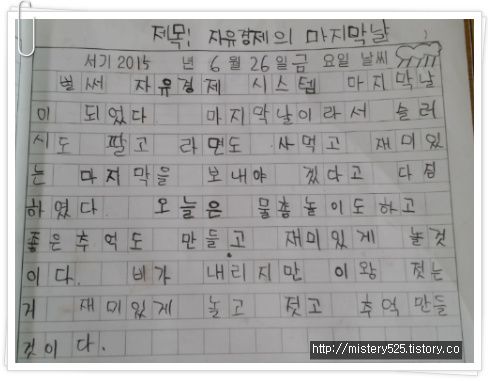 제목! 자유경제의 마지막날
서기 2015 년 6 월 26 일 금 요일 날씨
벌써 자유경제 시스템 마지막날
이 되었다. 마지막날이라서 슬러
시도 팔고 라면도 사먹고 재미있
는 마지막을 보내야 겠다고 다짐
하였다. 오늘은 물총놀이도하고
좋은추억도 만들고 재미있게 놀것
이다. 비가 내리지만 이왕 젖는
거 재미있게 놀고 젖고 추억만들
것이다.
http://mistery525.tistory.co